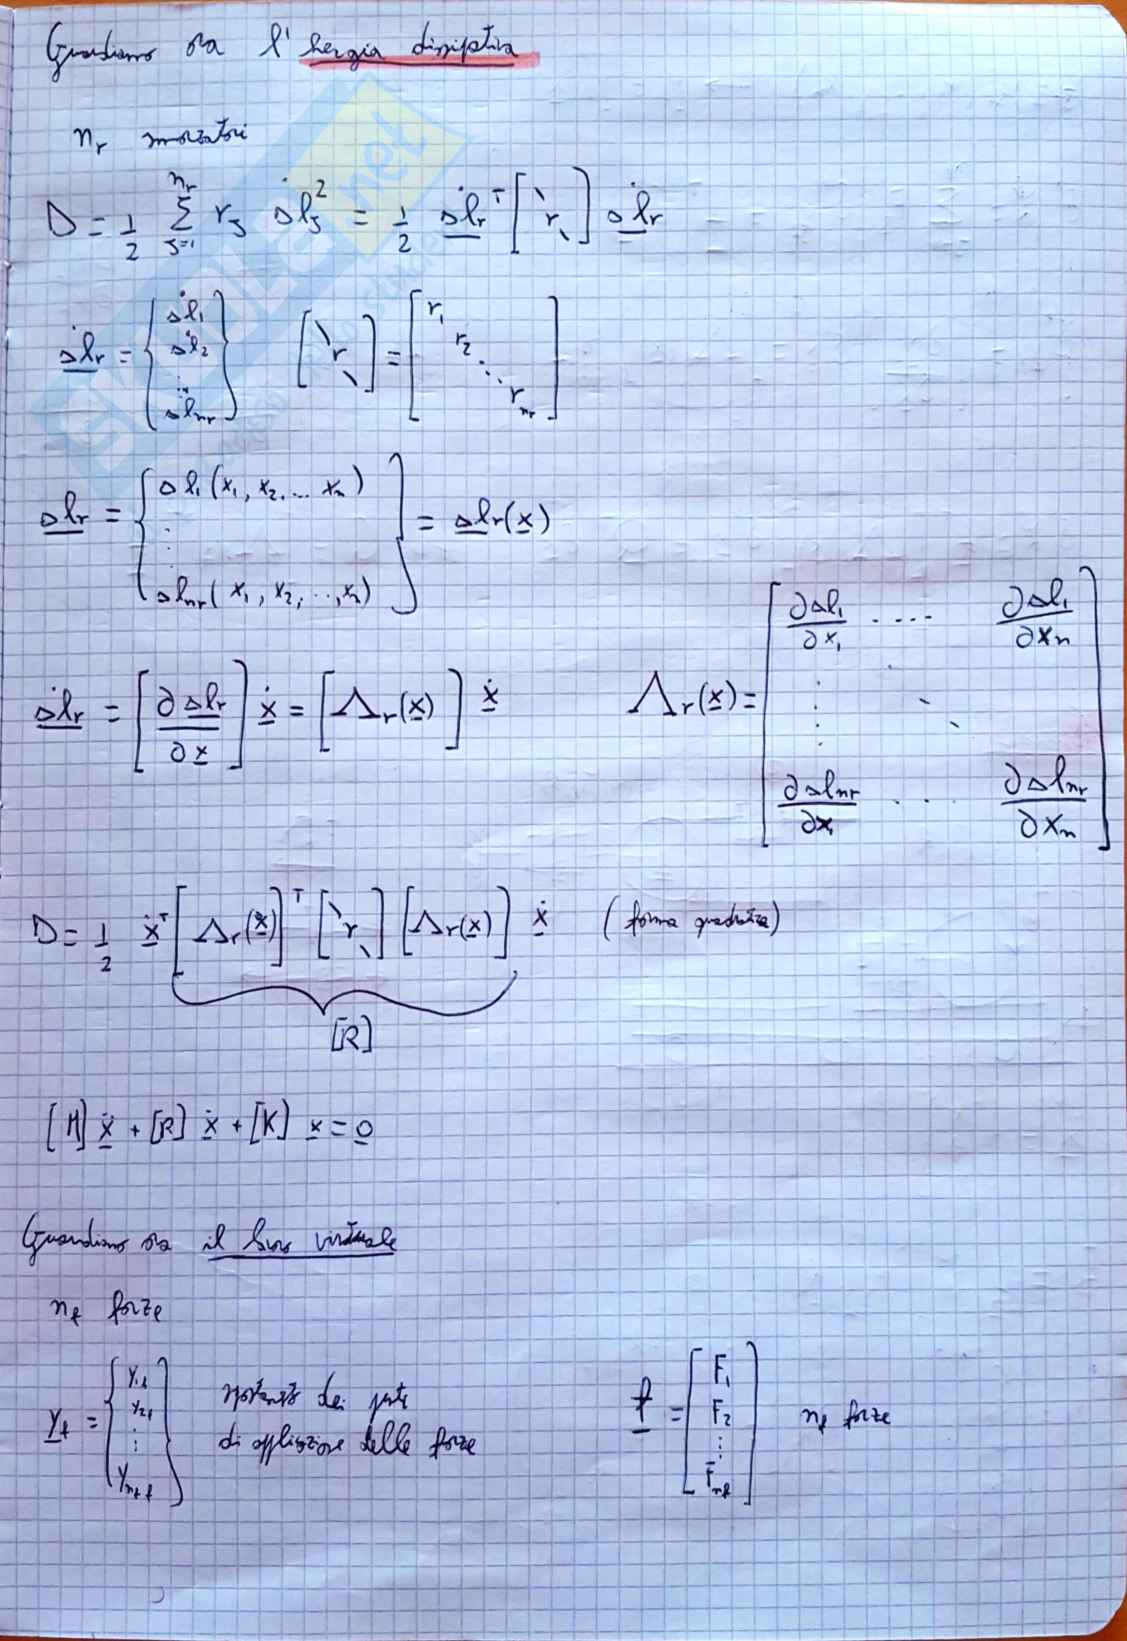 Guardiamo ora l'Energia dissipativa
n_r smorzatori
D = 1/2 Σ_{j=1}^{n_r} r_j Δl̇_j² = 1/2 Δl̇_r^T [⋱r⋱] Δl̇_r
Δl̇_r = {Δl̇_1 Δl̇_2 ⋮ Δl̇_nr} [⋱r⋱] = [r_1 r_2 ⋱ r_nr]
Δl_r = {Δl_1(x_1, x_2, ... x_n) ⋮ Δl_nr(x_1, x_2, ..., x_n)} = Δl_r(x)
Δl̇_r = [∂Δl_r/∂x] ẋ = [Λ_r(x)] ẋ Λ_r(x) = [∂Δl_1/∂x_1 .... ∂Δl_1/∂x_n ⋮ ⋱ ∂Δl_nr/∂x_1 ... ∂Δl_nr/∂x_n]
D = 1/2 ẋ^T [Λ_r(x)]^T [⋱r⋱] [Λ_r(x)] ẋ (forma quadratica)
[R]
[M] ẍ + [R] ẋ + [K] x = 0
Guardiamo ora il lavoro virtuale
n_f forze
y_f = {y_1f y_2f ⋮ y_nf f} spostamento dei punti di applicazione delle forze f = [F_1 F_2 ⋮ F_nf] n_f forze